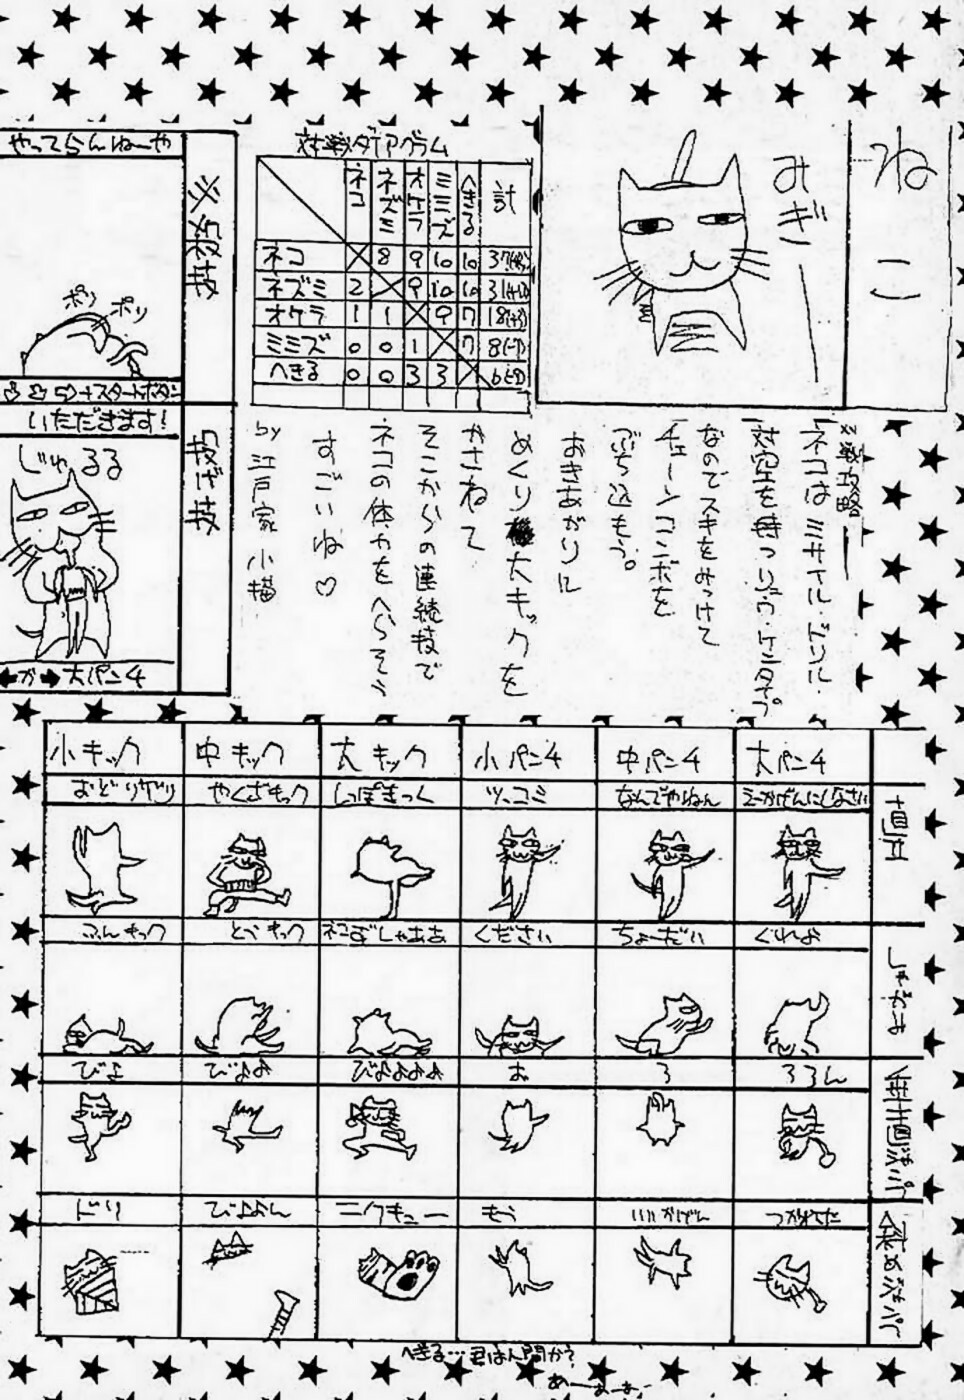 ねこ
みぎー
対戦ダイアグラム
ネコ ネズミ オケラ ミミズ へきる 計
ネコ 8 9 10 10 37
ネズミ 2 9 10 10 31
オケラ 1 1 9 7 18
ミミズ 0 0 1 7 8
へきる 0 0 3 3 6
必殺技
やってらんねーや
ポリ
ポリ
+スタートボタン
投げ技
いただきます!
じゅるる
←か→大パンチ
※戦攻略
ネコはミサイル・ドリル・
対空を持つリュウ・ケンタイプ
なのでスキをみつけて
チェーンコンボを
ぶち込もう。
おきあがりに
めくり大キックを
かさねて
そこからの連続技で
ネコの体力をへらそう
すごいね♡
by 江戸家 小猫
小キック 中キック 大キック 小パンチ 中パンチ 大パンチ
直立
おどりゲリ やくざキック しっぽきっく ツッコミ なんでやねん えーかげんにしなさい
しゃがみ
ふんキック とぶキック ネコずしゃああ ください ちょーだい ぐれよ
垂直ジャンプ
ぴよ ぴよよ ぴよよよよ お ろ ろろん
斜めジャンプ
ドリ ぴよよん ニクキュー もう いいかげん つかれた
へきる…君は人間か?
あーぁーぁ